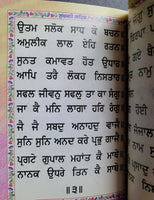 ਸੁਖਮਨੀ ਸਾਹਿਬ
ਉਤਮ ਸਲੋਕ ਸਾਧ ਕੇ ਬਚਨ ॥
ਅਮੁਲੀਕ ਲਾਲ ਏਹਿ ਰਤਨ ॥
ਸੁਨਤ ਕਮਾਵਤ ਹੋਤ ਉਧਾਰ ॥
ਆਪਿ ਤਰੈ ਲੋਕਹ ਨਿਸਤਾਰ ॥
ਸਫਲ ਜੀਵਨੁ ਸਫਲੁ ਤਾ ਕਾ ਸੰਗੁ ॥
ਜਾ ਕੈ ਮਨਿ ਲਾਗਾ ਹਰਿ ਰੰਗੁ ॥
ਜੈ ਜੈ ਸਬਦੁ ਅਨਾਹਦੁ ਵਾਜੈ ॥
ਸੁਨਿ ਸੁਨਿ ਅਨਦ ਕਰੇ ਪ੍ਰਭੁ ਗਾਜੈ ॥
ਪ੍ਰਗਟੇ ਗੁਪਾਲ ਮਹਾਂਤ ਕੈ ਮਾਥੇ ॥
ਨਾਨਕ ਉਧਰੇ ਤਿਨ ਕੈ ਸਾਥੇ ॥
॥੩॥